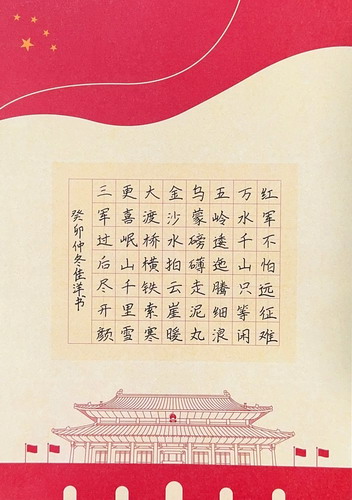 红军不怕远征难
万水千山只等闲
五岭逶迤腾细浪
乌蒙磅礴走泥丸
金沙水拍云崖暖
大渡桥横铁索寒
更喜岷山千里雪
三军过后尽开颜
癸卯仲冬佳洋书